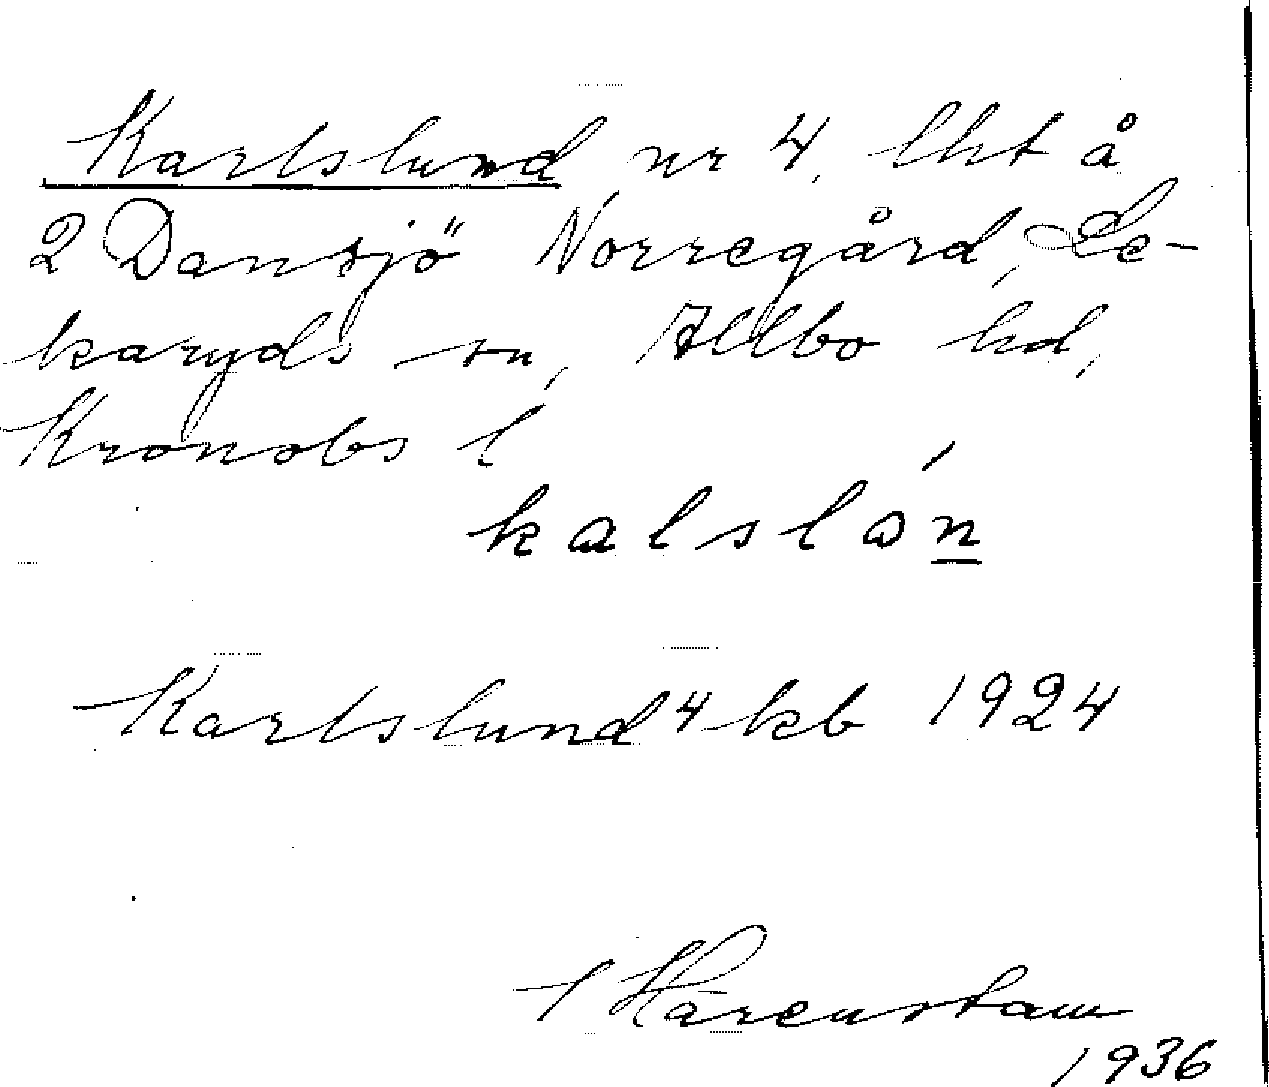 Karlslund nr 4, lht å
2 Dansjö Norregård, Le-
karyds sn, Allbo hd,
Kronobs l
kalsló̱n
Karlslund 4 kb 1924
Härenstam
1936